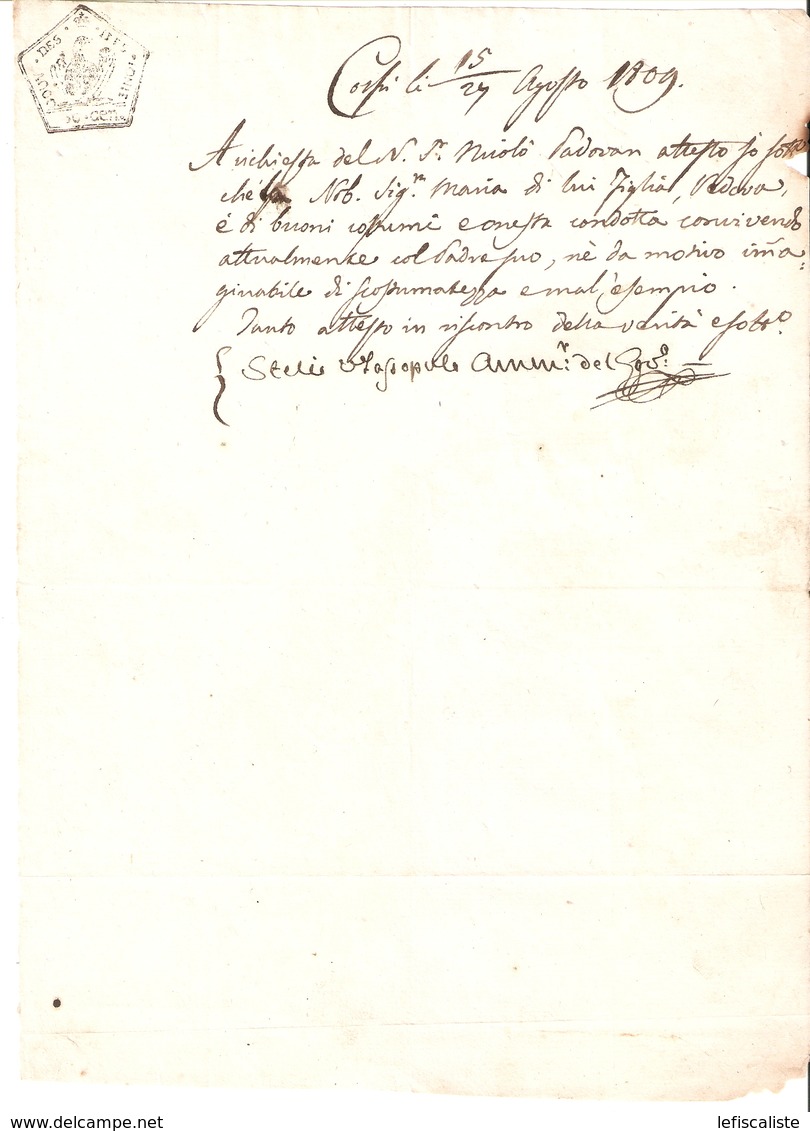 DES ILES
50 CEN
Corfù li 15/27 Agosto 1809.
A richiesta del N. Sr. Nicolò Padovan attesto io sotto
che la Nob. Sigrn. Maria di lui Figlia, Vedova,
è di buoni costumi e onesta condotta convivendo
attualmente col Padre suo, nè da motivo ima=
ginabile di scostumatezza e mal' esempio.
Tanto attesto in riscontro della verità e sottoo.
Amm.r: del Gov.o:
www.delcampe.net
lefiscaliste